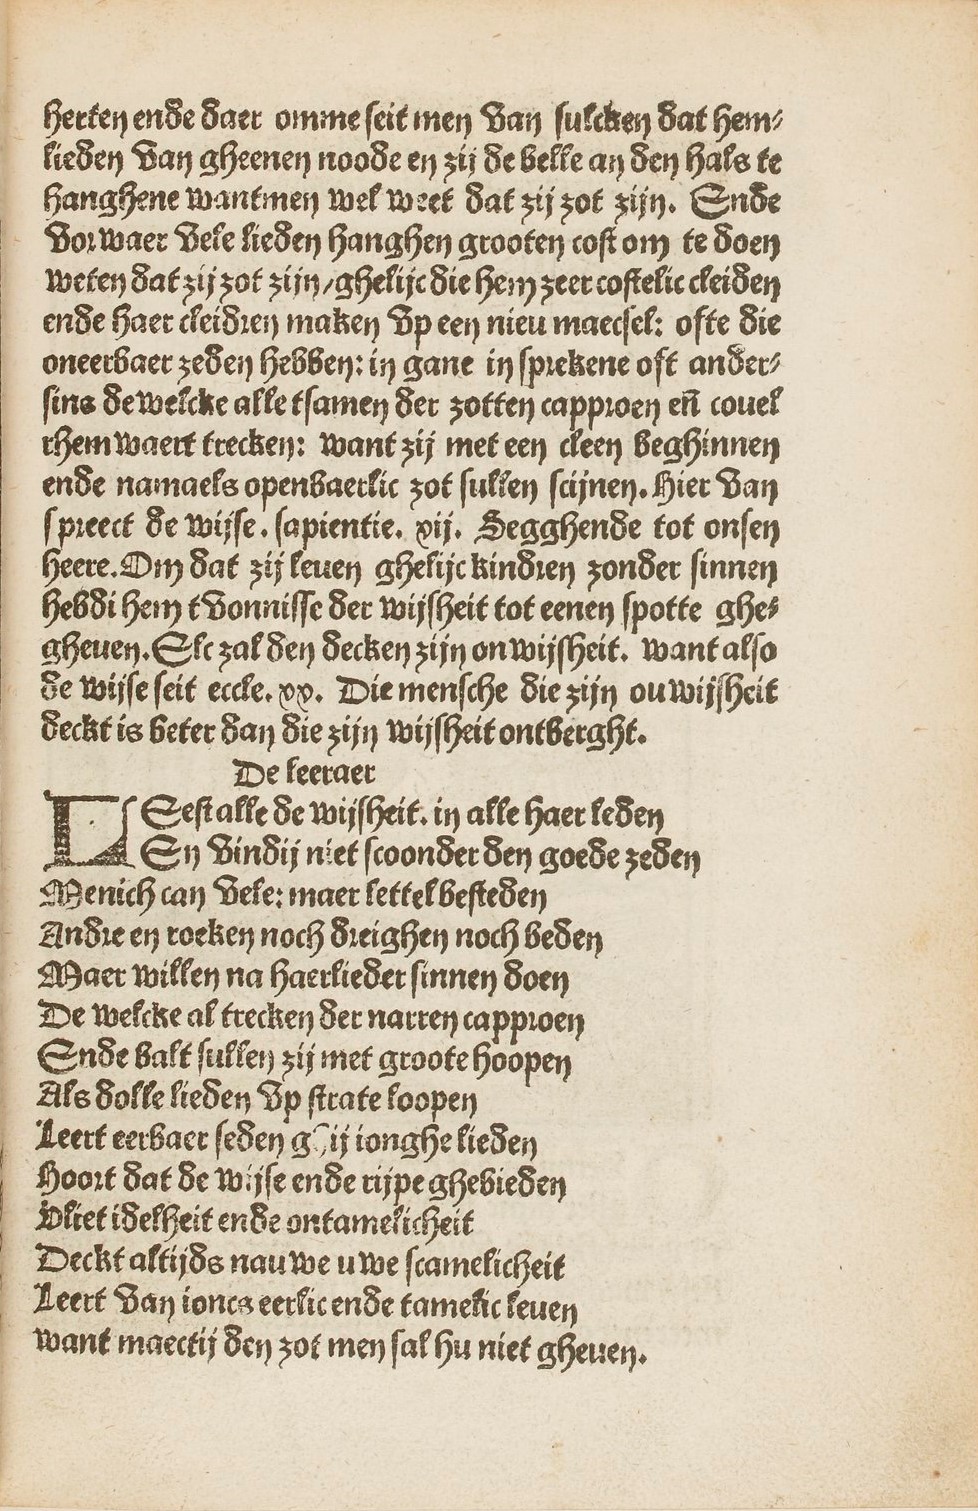 herten ende daer omme seit men van sulcken dat hem⸗
lieden van gheenen noode en zij de belle an den hals te
hanghene wantmen wel weet dat zij zot zijn. Ende
vorwaer vele lieden hanghen grooten cost om te doen
weten dat zij zot zijn/ghelijc die hem zeer costelic cleiden
ende haer cleidren maken vp een nieu maecsel: ofte die
oneerbaer zeden hebben: in gane in sprekene oft ander⸗
sins dewelcke alle tsamen der zotten capproen eñ couel
them waert trecken: want zij met een cleen beghinnen
ende namaels openbaerlic zot sullen scijnen. Hier van
spreect de wijse. sapientie. xij. Segghende tot onsen
heere. Om dat zij leuen ghelijc kindren zonder sinnen
hebdi hem tvonnisse der wijsheit tot eenen spotte ghe⸗
gheuen. Elc zal den decken zijn onwijsheit. want also
de wijse seit eccle. xx. Die mensche die zijn ouwijsheit
deckt is beter dan die zijn wijsheit ontberght.
De leeraer
LEest alle de wijsheit. in alle haer leden
En vindij niet scoonder den goede zeden
Menich can vele: maer lettel besteden
Andre en roeken noch dreighen noch beden
Maer willen na haerlieder sinnen doen
De welcke al trecken der narren capproen
Ende balt sullen zij met groote hoopen
Als dolle lieden vp strate loopen
Leert eerbaer seden ghij ionghe lieden
Hoort dat de wijse ende rijpe ghebieden
Vliet idelheit ende ontamelicheit
Deckt altijds nauwe uwe scamelicheit
Leert van ioncs eerlic ende tamelic leuen
want maectij den zot men sal hu niet gheuen.